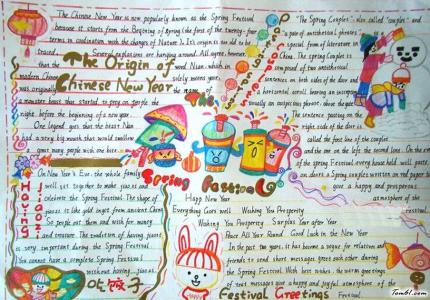 The Chinese New Year is now popularly known as the Spring Festival
because it starts from the Begining of Spring (the first of the twenty-four
terms in coodination with the changes of Nature). Its origin is too old to be
traced. Several explanations are hanging around. All agree, however,
that the word Nian, which in
modern Chinese solely means year,
was originally the name of
a monster beast that started to prey on people the
night before the beginning of a new year.
One legend goes that the beast Nian
had a very big mouth that would swallow a
great many people with one bite.
The Origin of
Chinese New Year
On New Year's Eve, the whole family
will get together to make jiaozi and
celebrate the Spring Festival. The shape of
jiaozi is like gold ingot from ancient China.
So people eat them and wish for money
and treasure. The tradition of having jiaozi
is very important during the Spring Festival.
You cannot have a complete Spring Festival
without having jiaozi.
Having
Jiaozi
吃饺子
The
Spring Festival
Happy New Year
Everything Goes well Wishing You Prosperity
Wishing You Prosperity Surplus Year after Year
Peace All Year Round Good Luck in the New Year
"The Spring Couplets", also called "couplet" and
"a pair of antithetical phrases",
special form of literature in
China. The Spring Couplet is
composed of two antithetical
sentences on both sides of the door and
a horizontal scroll bearing an inscription,
usually an auspicious phrase, above the gate.
The sentence pasting on the
right side of the door is
called the first line of the couplet
and the one on the left the second line. On the eve
of the Spring Festival, every household will paste
on doors a Spring Couplet written on red paper to
give a happy and prosperous
atmosphere of the
Festival.
In the past ten years, it has become a vogue for relatives and
friends to send short messages greet each other during
the Spring Festival. With best wishes, the warm greetings
of text messages give a happy and joyful atmosphere of the
Festival.
Festival Greetings
Tom61.com